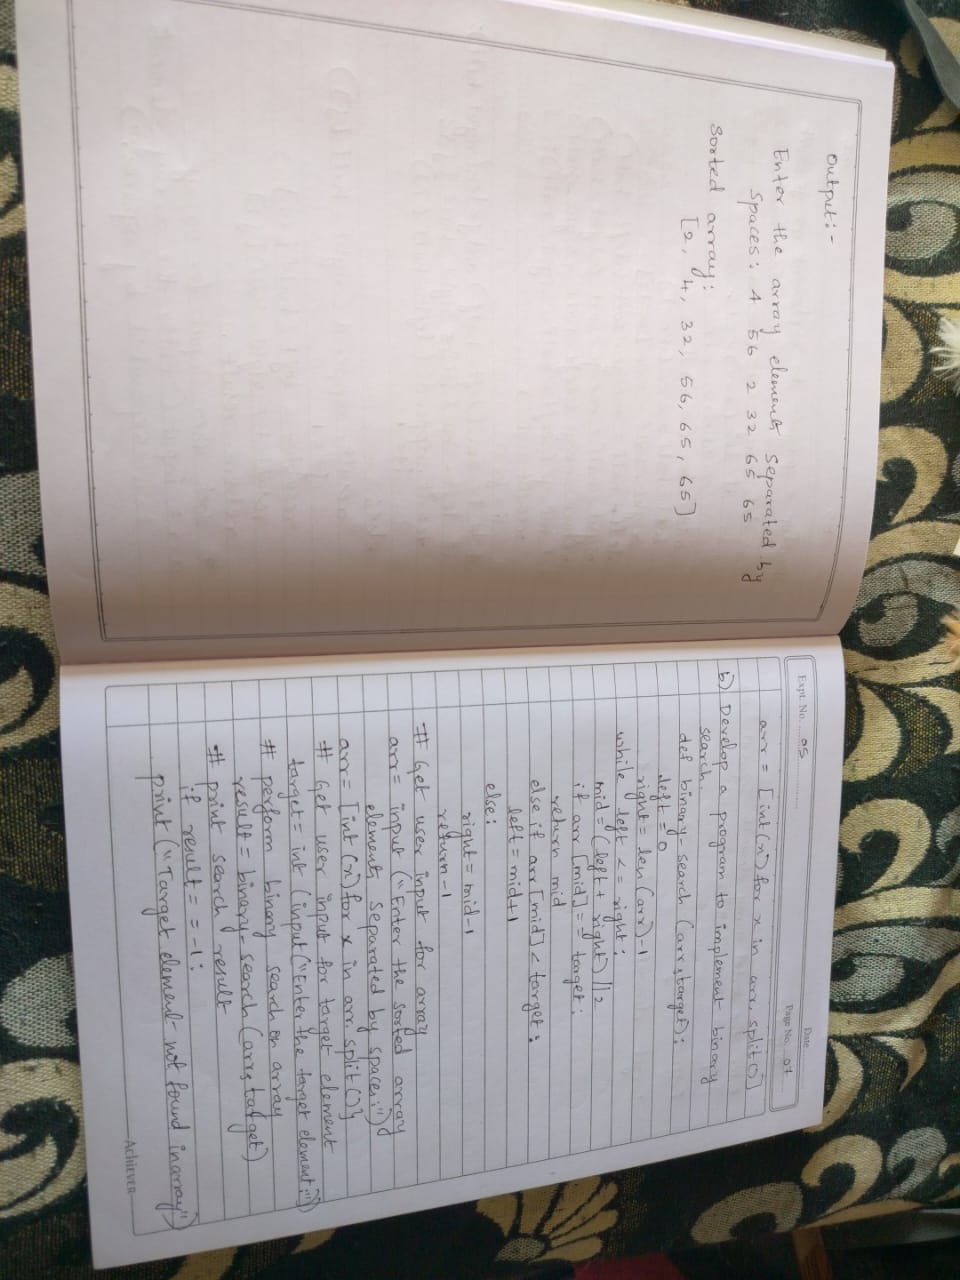 Output:-
Enter the array element separated by
spaces: 4 56 2 32 65 65
Sorted array:
[2, 4, 32, 56, 65, 65]
Expt. No. 05
Date
Page No. 07
arr = [int(x) for x in arr. split()]
b) Develop a program to implement binary
search.
def binary-search (arr, target):
left = 0
right = len (arr) -1
while left <= right:
mid = (left + right) //2
if arr [mid] == target:
return mid
else if arr [mid] < target:
left = mid+1
else:
right = mid-1
return -1
# Get user input for array
arr = input ("Enter the sorted array
element separated by spaces:")
arr = [int (x) for x in arr. split()]
# Get user input for target element
target = int (input ("Enter the target element:"))
# perform binary search on array
result = binary-search (arr, target)
# print search result
if result == -1:
print ("Target element not found in array")
ACHIEVER